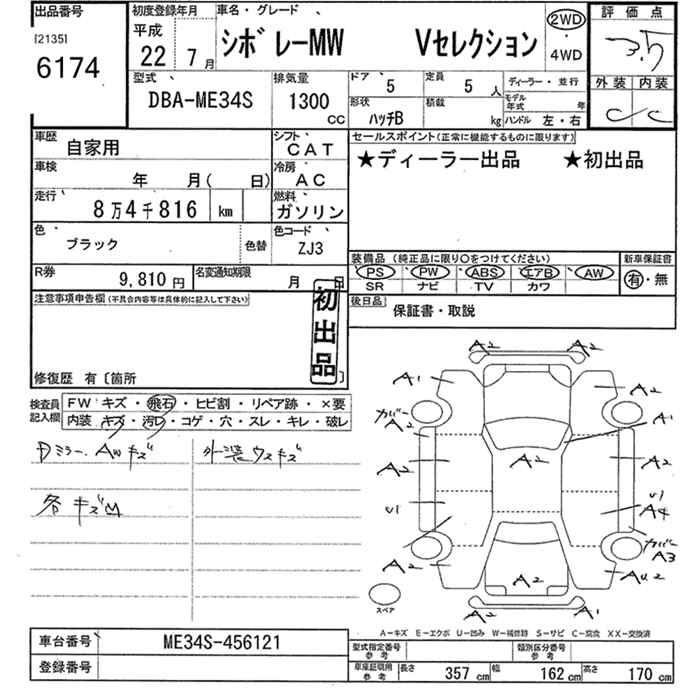 出品番号 初度登録年月 車名・グレード 評価点
[2135] 平成
6174 22年 7月 シボレーMW Vセレクション 2WD・4WD 3.5
型式 排気量 ドア 5 定員 5人 ディーラー・並行 外装 内装
DBA-ME34S 1300CC 形状 ハッチB 積載 kg モデル年式 年 ハンドル 左・右 C C
車歴 自家用 シフト CAT セールスポイント(正常に機能するものに限ります)
車検 年 月( 日) 冷房 AC ★ディーラー出品 ★初出品
走行 8万4千816 km 燃料 ガソリン
色 ブラック 色替 色コード ZJ3
装備品(純正品に限り○をつけてください) 新車保証書
PS PW ABS エアB AW 有・無
SR ナビ TV カワ
R券 9,810円 名変通知期限 月 日
後日品 保証書・取説
注意事項申告欄(不具合内容等は具体的に記入して下さい)
初出品
修復歴 有〔箇所 〕
検査員記入欄 FW キズ・飛石・ヒビ割・リペア跡・×要
内装 キズ・汚レ・コゲ・穴・スレ・キレ・破レ
Dミラー、AWキズ 外装ウスキズ
各キズM
A2 A2
A1 A2
カバー A2 A1
A2 A2 A2
U1 U1
A4
カバー A3
A2 A2 AU2
A2 A1
スペア
A-キズ E-エクボ U-凹み W-補修跡 S-サビ C-腐食 XX-交換済
車台番号 ME34S-456121
登録番号
型式指定番号 参考 類別区分番号 参考
車庫証明用 参考 長さ 357cm 幅 162cm 高さ 170cm